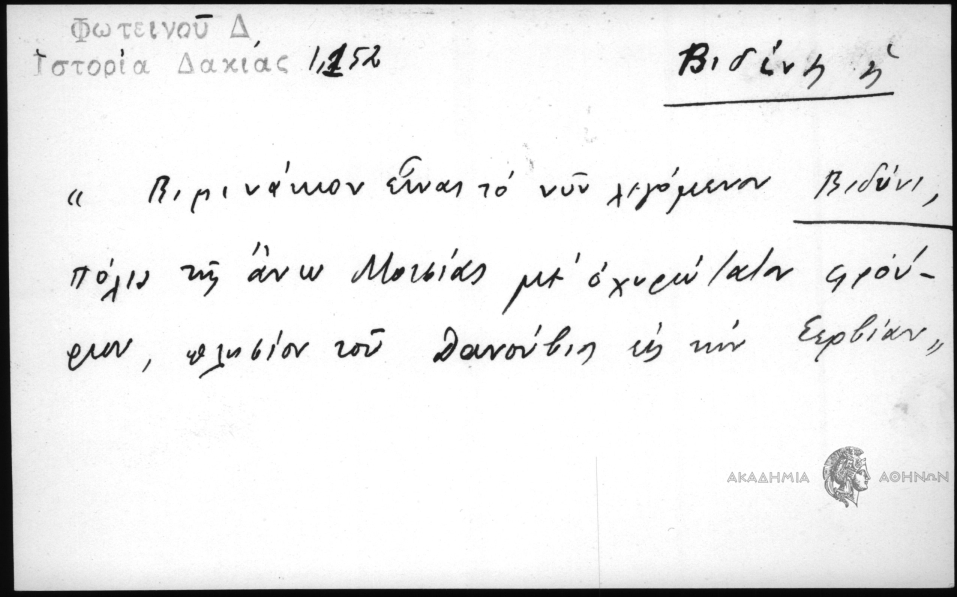 Φωτεινοῦ Δ
Ἱστορία Δακίας 1,152
Βιδύνη ἡ
" Βιμινάκιον εἶναι τό νῦν λεγόμενον Βιδύνι,
πόλις τῆς ἄνω Μοισίας μέ ὀχυρώτατον φρού-
ριον, πλησίον τοῦ Δανούβις εἰς τήν Σερβίαν"
ΑΚΑΔΗΜΙΑ ΑΘΗΝΩΝ